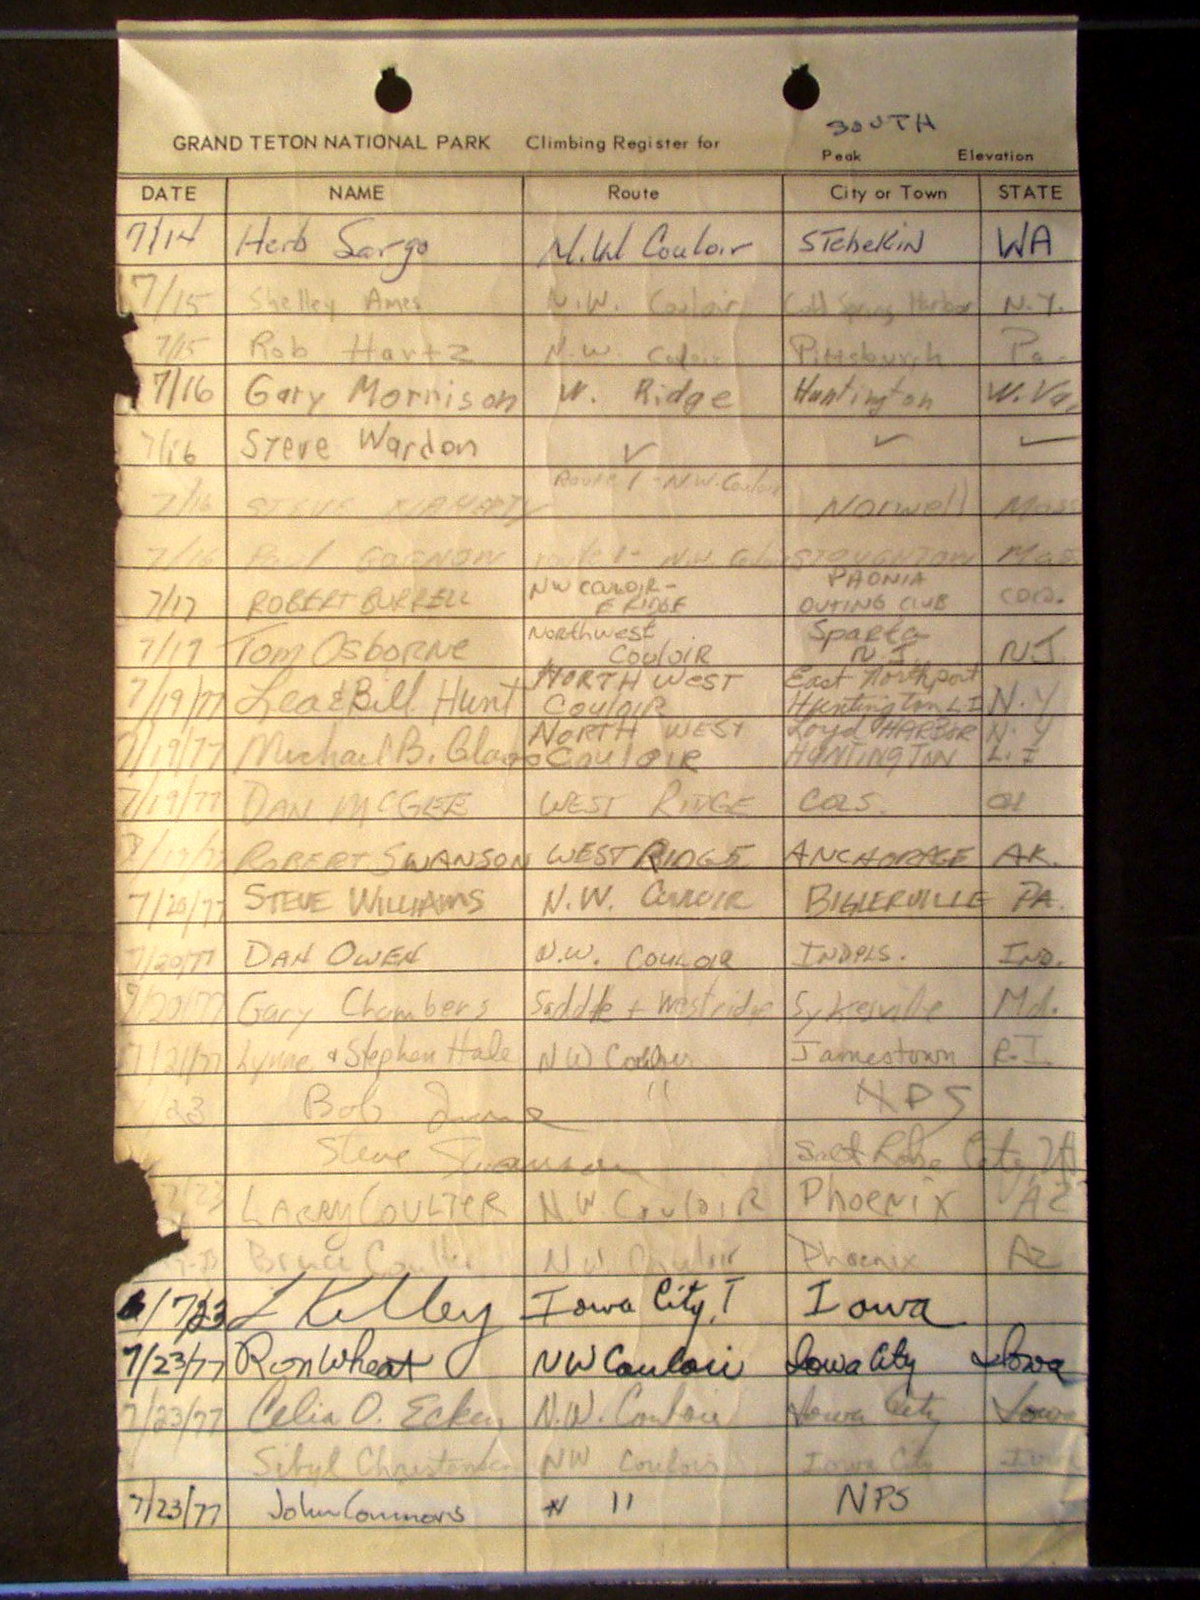 SOUTH
GRAND TETON NATIONAL PARK Climbing Register for Peak Elevation
DATE NAME Route City or Town STATE
7/14 Herb Sargo N.W Couloir STEheKiN WA
7/15 Shelley Ames N.W. Couloir Cold Spring Harbor N.Y.
7/15 Rob Hartz N.W. Couloir Pittsburgh Pa.
7/16 Gary Morrison W. Ridge Huntington W.Va.
7/16 Steve Wardon ✓ ✓ —
Route 1 - N.W. Couloir
7/16 STEVE Norwell Mass
7/16 Paul route 1- N.W. STOUGHTON Mass
7/17 ROBERT BURRELL NW COULOIR - E RIDGE PAONIA OUTING CLUB COLO.
7/19 TOM OSBORNE Northwest COULOIR Sparta N.J NJ
7/19/77 Lea & Bill Hunt NORTH WEST COULOIR East Northport Huntington LI N.Y
7/19/77 Michael B. Glass NORTH WEST COULOIR Loyd HARBOR HUNTINGTON N.Y L.I
7/19/77 DAN MCGEE WEST RIDGE COLS. OH
7/19/77 ROBERT SWANSON WEST RIDGE ANCHORAGE AK.
7/20/77 STEVE WILLIAMS N.W. COULOIR BIGLERVILLE PA.
7/20/77 DAN OWEN N.W. COULOIR INDPLS. IND.
7/20/77 Gary Chambers Saddle + West ridge Sykesville Md.
7/21/77 Lynne & Stephen Hale NW Couloir Jamestown R.I.
/23 Bob " NPS
Steve Swanson Salt Lake City, Ut
7/23 LARRY COULTER N.W. CouloiR Phoenix AZ
Bruce Coulter N.W. Couloir Phoenix Az
7/23 L Kelley Iowa City, I Iowa
7/23/77 Ron Wheat NW Couloir Iowa City Iowa
7/23/77 Celia O. Ecker N.W. Couloir Iowa City Iowa
Sibyl Christensen NW Couloir Iowa City
7/23/77 John Connors " NPS